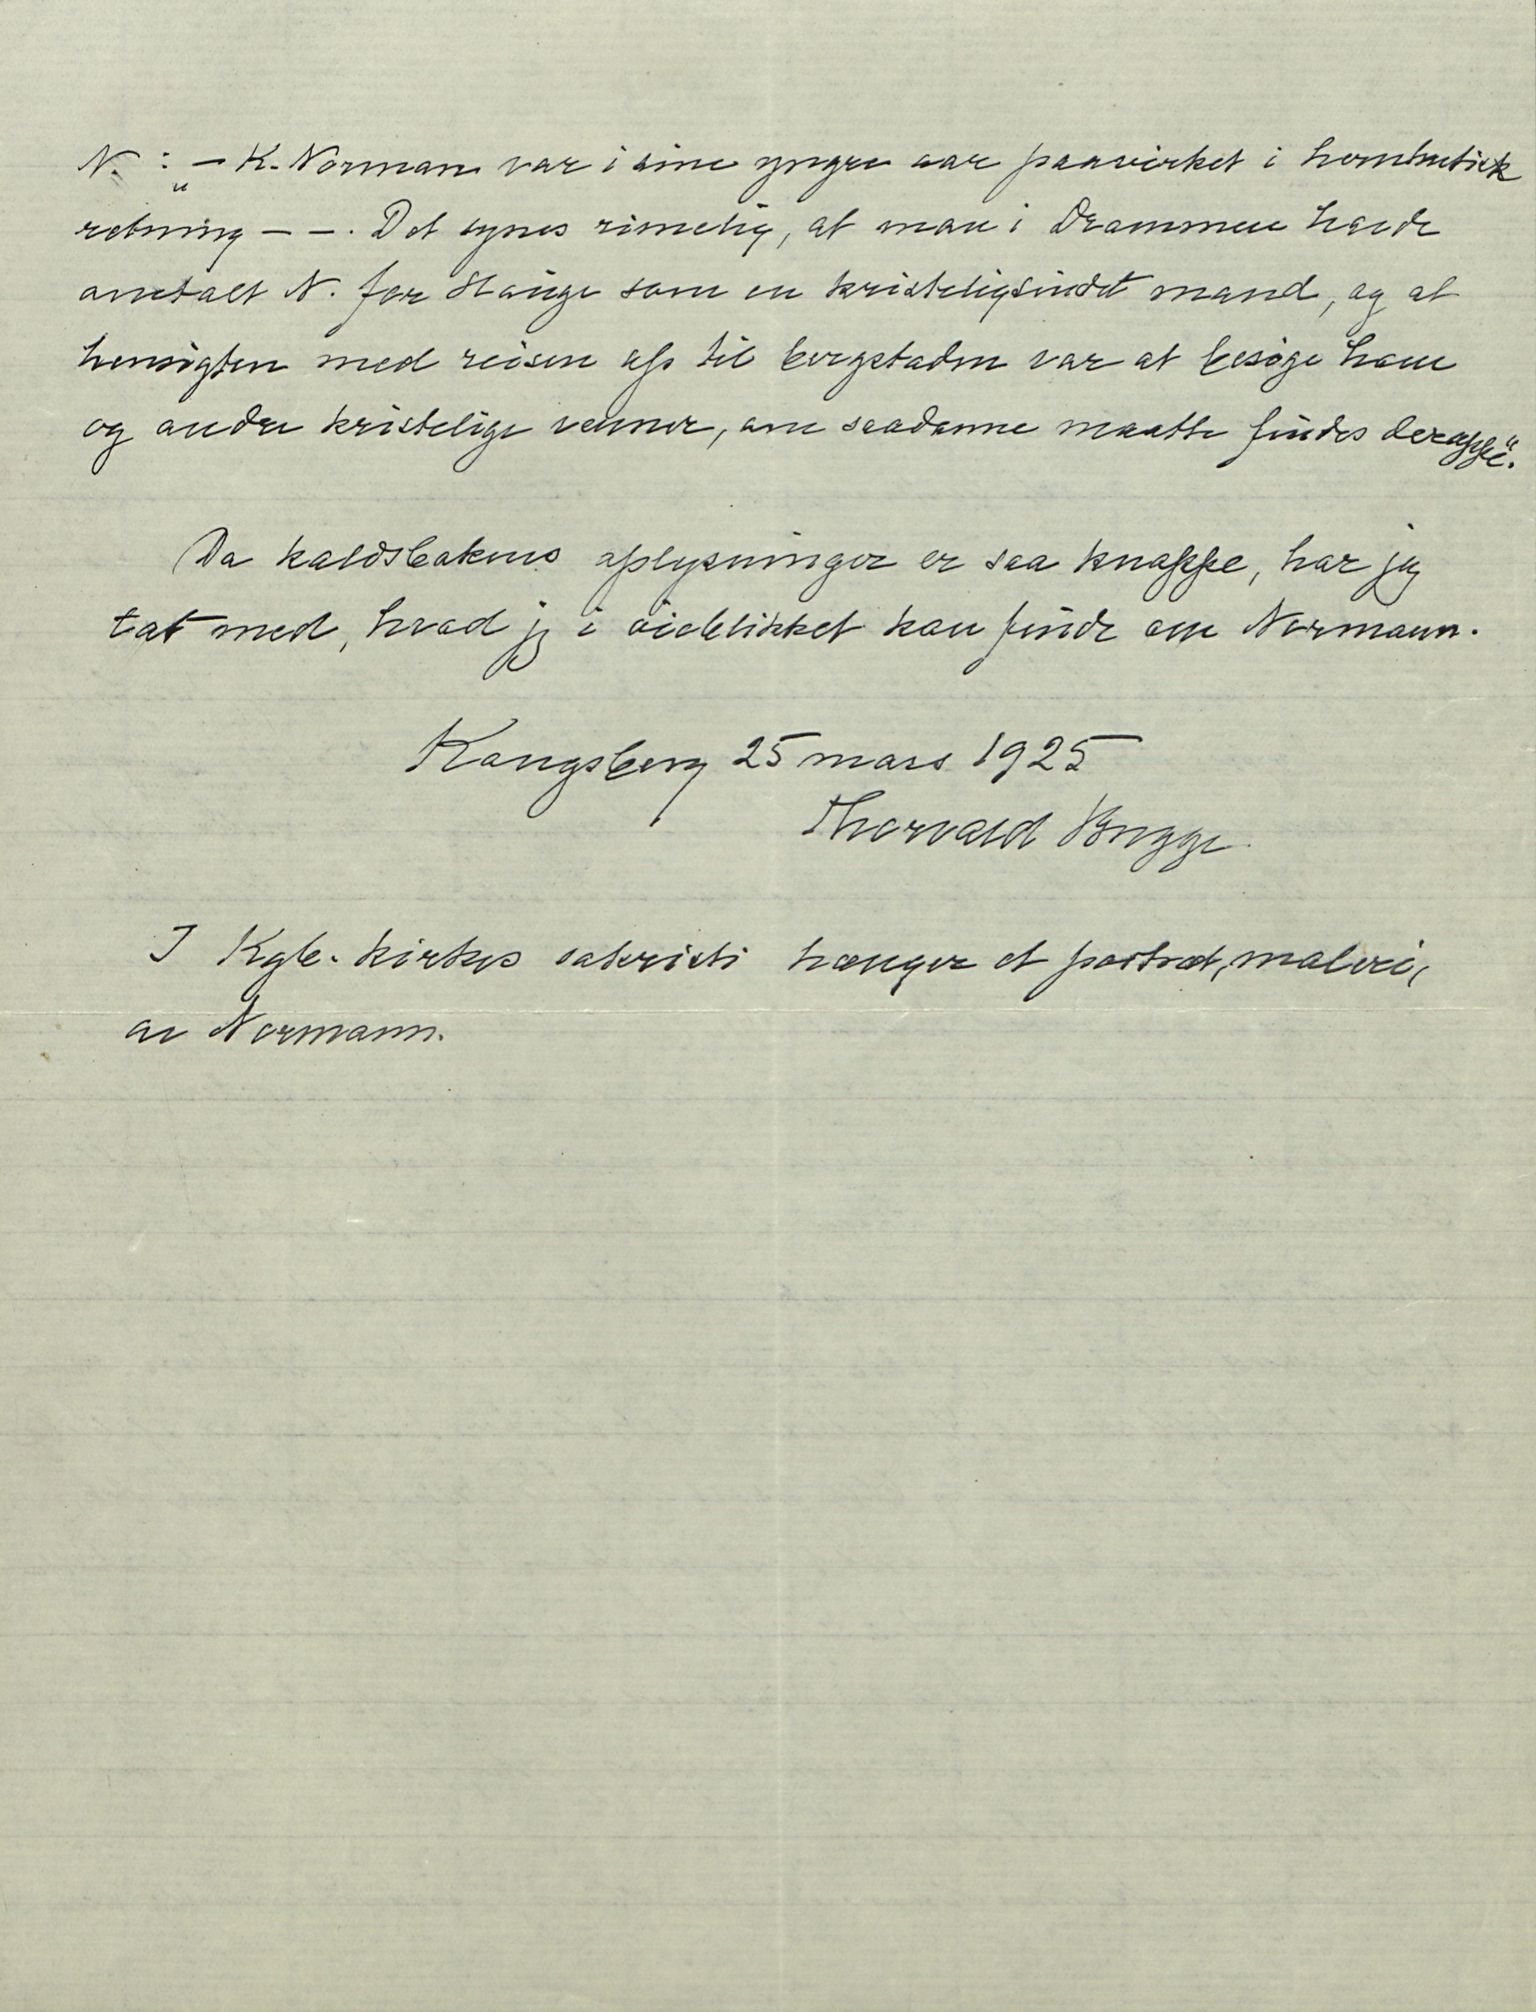 N. : „— K. Normann var i sine yngre aar paavirket i hernhutisk
retning — —. Det synes rimelig, at man i Drammen havde
omtalt N. for Hauge som en kristeligsindet mand, og at
hensigten med reisen op til bergstaden var at besøge ham
og andre kristelige venner, om saadanne maatte findes deroppe“.
Da kaldsbokens oplysninger er saa knappe, har jeg
tat med, hvad jeg i øieblikket kan finde om Normann.
Kongsberg 25 mars 1925
Thorvald Bugge.
I Kgb. kirkes sakristi hænger et portræt, maleri,
av Normann.